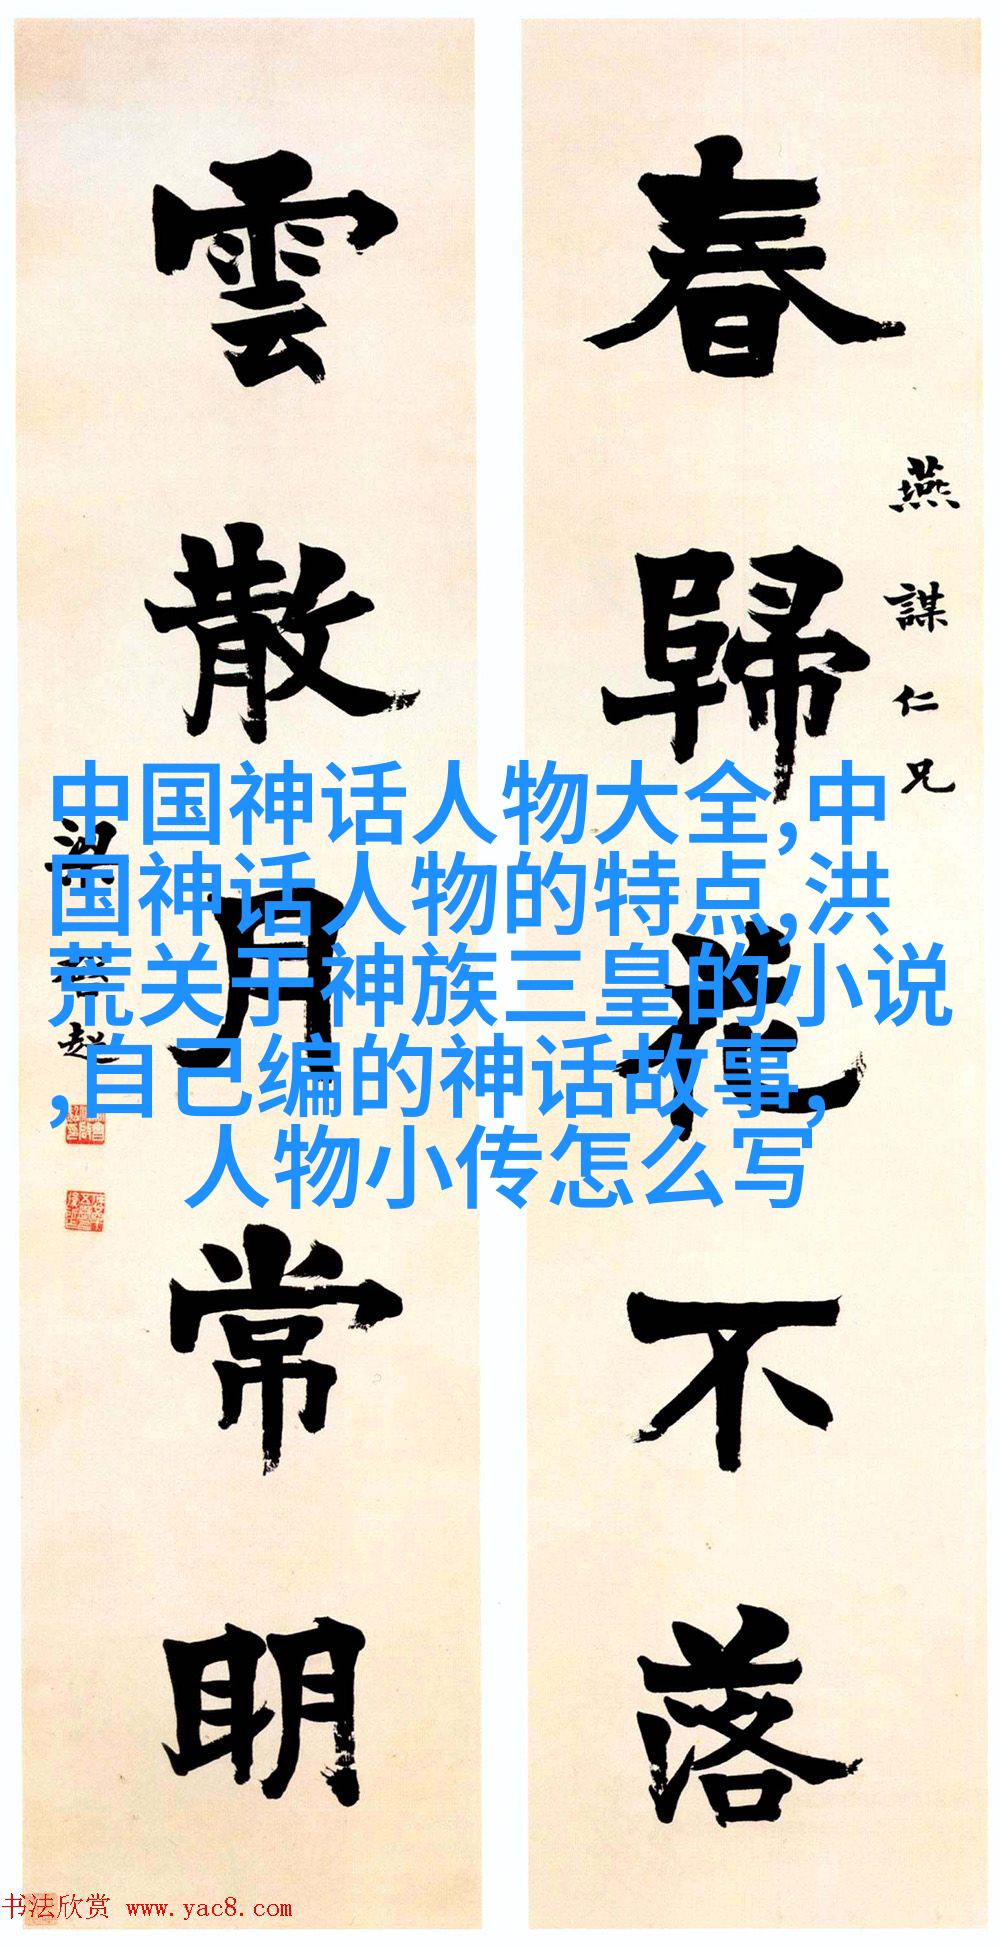 春歸花不落
燕謀仁兄
雲散月常明
梁啓超
中国神话人物大全,中
国神话人物的特点,洪
荒关于神族三皇的小说
,自己编的神话故事,
人物小传怎么写
书法欣赏 www.yac8.com